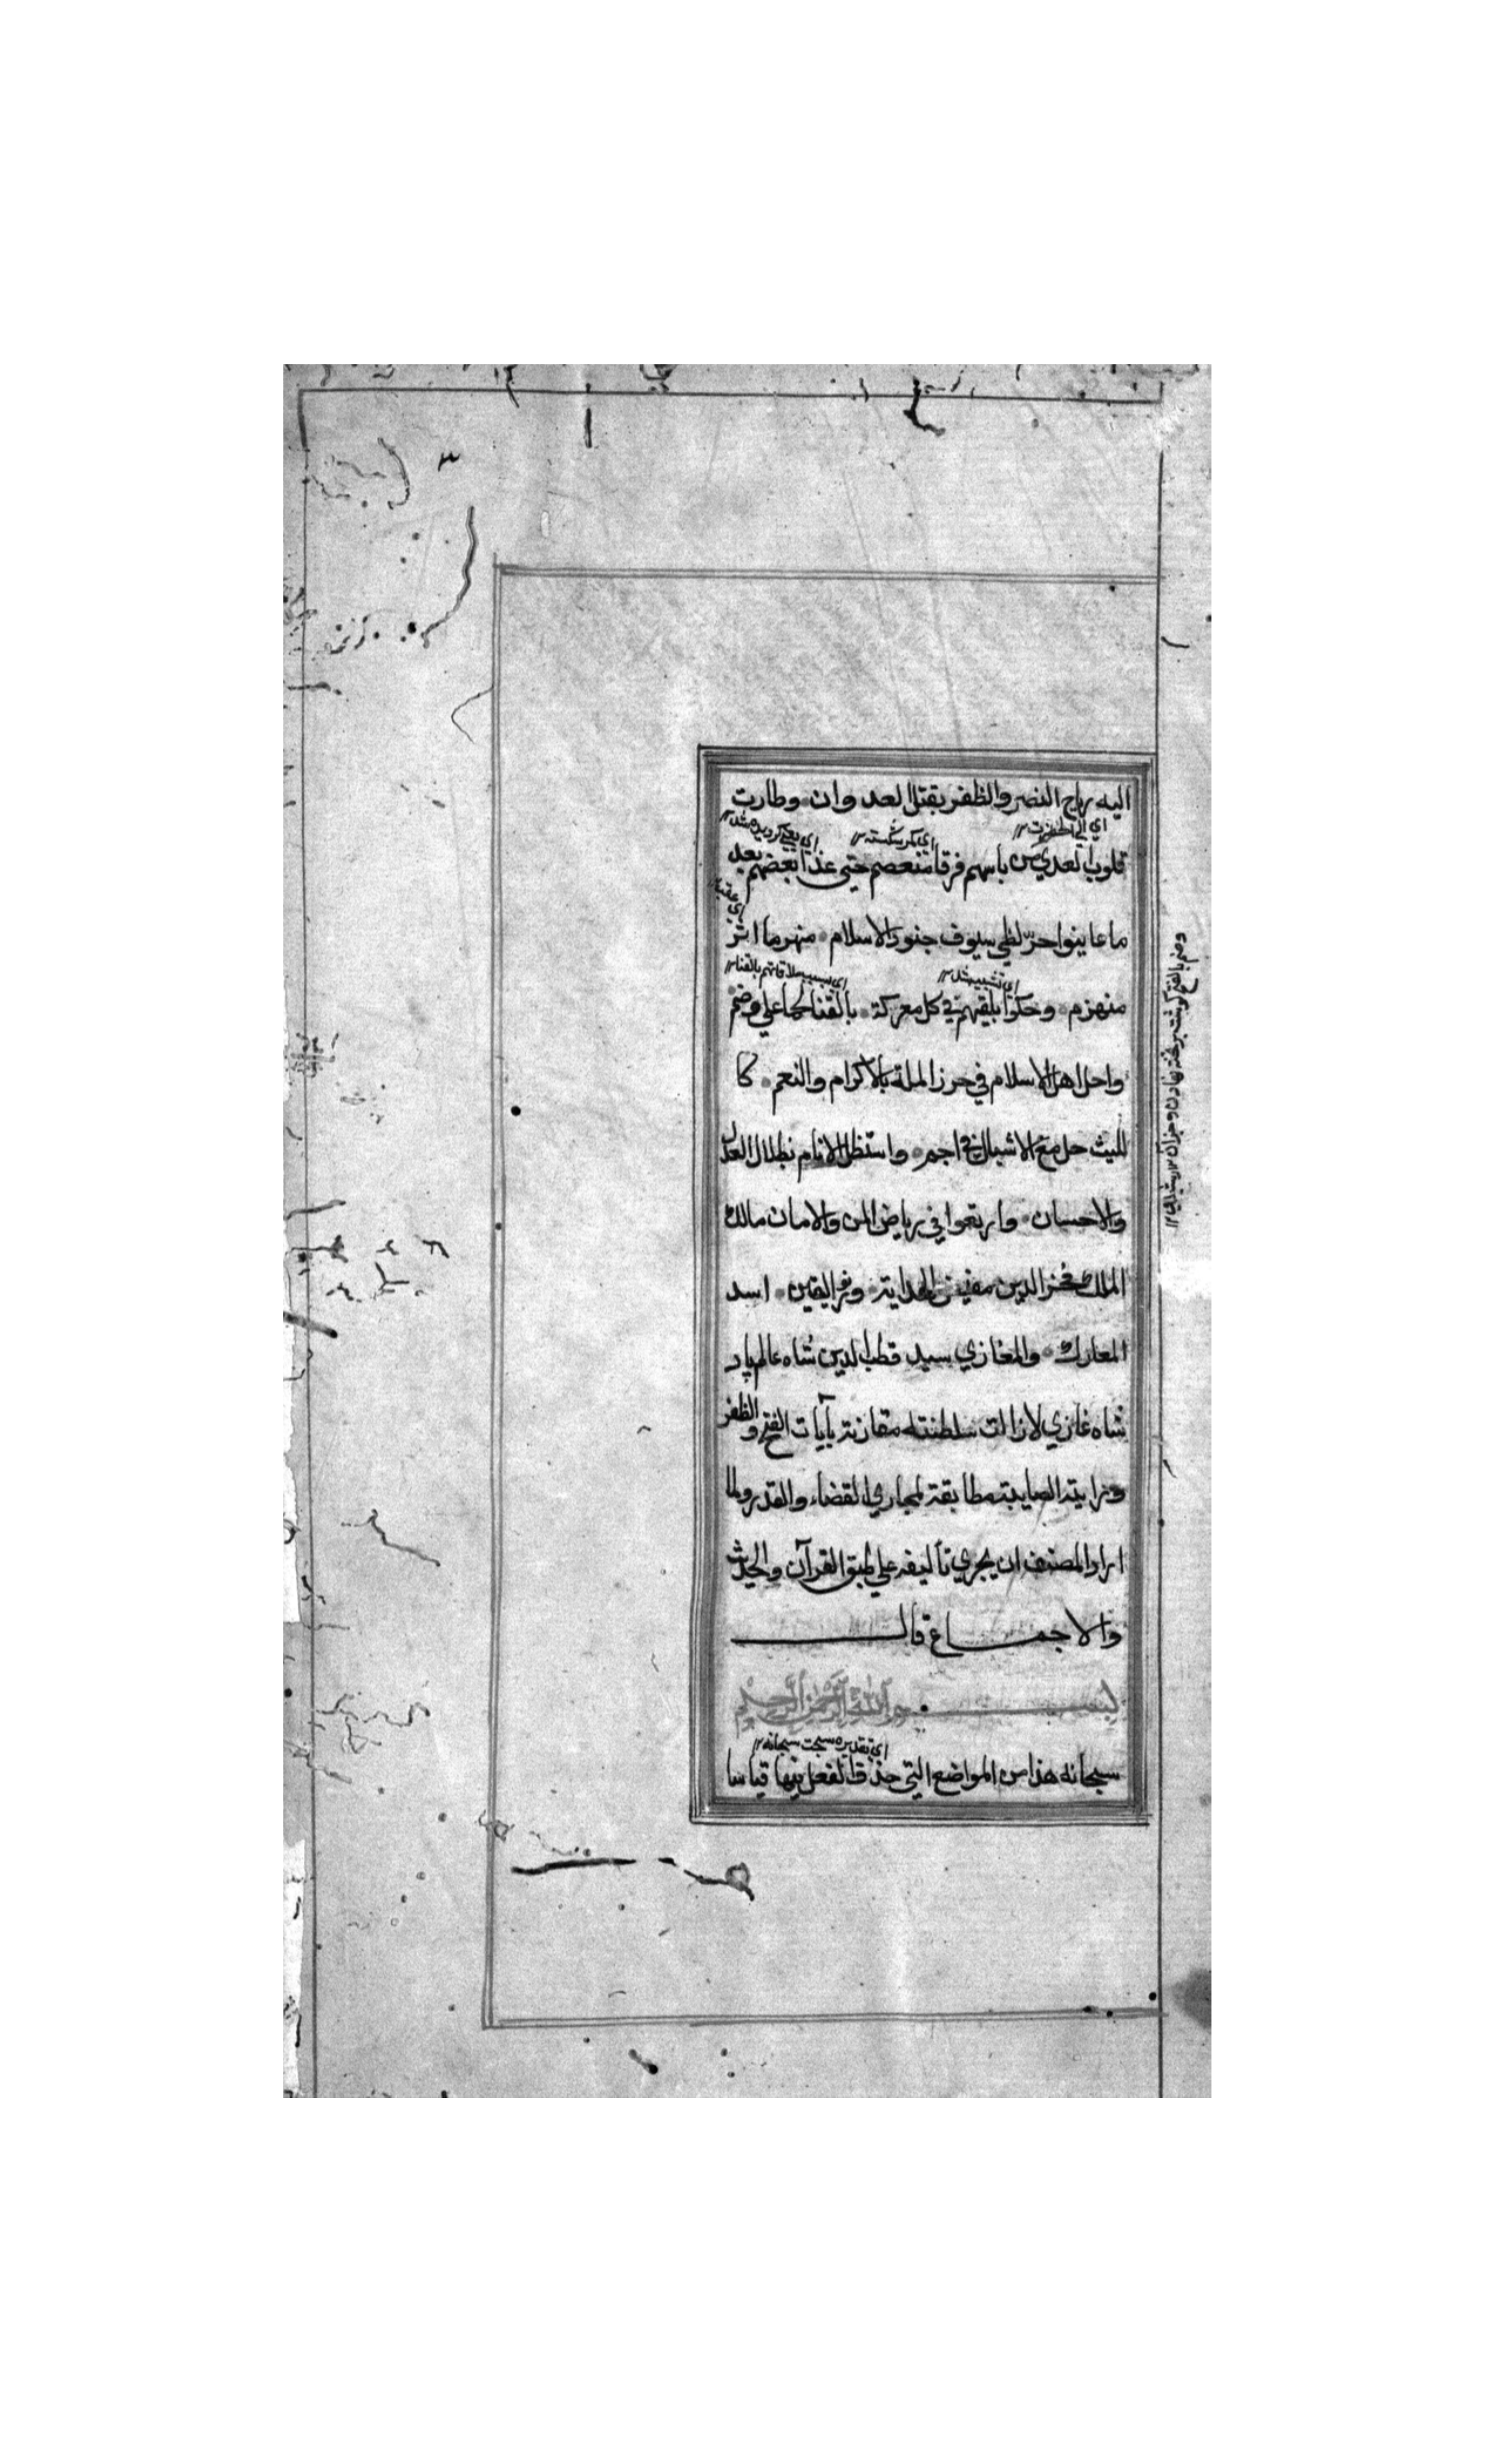 ٣
اليه رياح النصر والظفر بقتل العدوان وطارت
اي كمر شكسته
قلوب العدي من بأسهم فرقا منعصم حتى غذا بعضهم بعد
ما عاينوا حرّ لظي سيوف جنود الاسلام منهرما اثر
اي بسبب ملاقاتهم بالقنا
منهزم وحكوا بليقهم في كل معركة بالقنا لحما علي وضم
واحل اهل الاسلام في حرز الملة بالاكرام والنعم كا
لليث حل مع الاشبال في اجم واستظل الانام بظلال العدل
والاحسان وارتعوا في رياض المن والامان مالك
الملك فخر الدين مفيض الهداية ونور اليقين اسد
المعارك والمغازي سيد قطب الدين شاه عالم پاد
شاه غازي لازالت سلطنته مقارنة بآيات الفتح والظفر
ورايته الصايبة مطابقة لمجاري القضاء والقدر ولما
اراد المصنف ان يجري تأليفه علي طبق القرآن والحديث
والاجماع قال
بسم الله الرحمن الرحيم
اي تقديره سبحت سبحانه
سبحانه هذا من المواضع التي حذف الفعل فيها قياسا